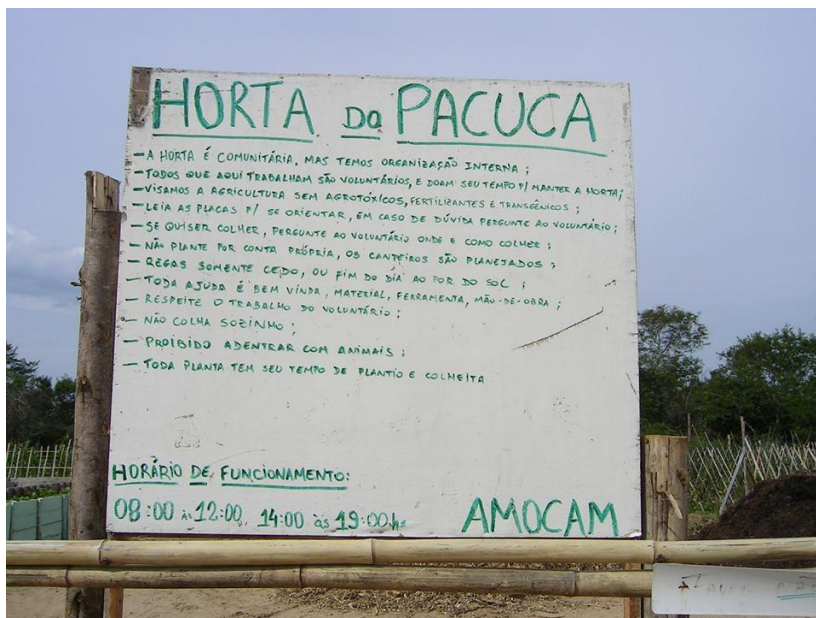 HORTA DO PACUCA
– A HORTA É COMUNITÁRIA, MAS TEMOS ORGANIZAÇÃO INTERNA ;
– TODOS QUE AQUI TRABALHAM SÃO VOLUNTÁRIOS, E DOAM SEU TEMPO P/ MANTER A HORTA;
– VISAMOS A AGRICULTURA SEM AGROTÓXICOS, FERTILIZANTES E TRANSGÊNICOS ;
– LEIA AS PLACAS P/ SE ORIENTAR, EM CASO DE DÚVIDA PERGUNTE AO VOLUNTÁRIO ;
– SE QUISER COLHER, PERGUNTE AO VOLUNTÁRIO ONDE E COMO COLHER ;
– NÃO PLANTE POR CONTA PRÓPRIA, OS CANTEIROS SÃO PLANEJADOS ;
– REGAS SOMENTE CEDO, OU FIM DO DIA AO POR DO SOL ;
– TODA AJUDA É BEM VINDA, MATERIAL, FERRAMENTA, MÃO-DE-OBRA ;
– RESPEITE O TRABALHO DO VOLUNTÁRIO ;
– NÃO COLHA SOZINHO ;
– PROIBIDO ADENTRAR COM ANIMAIS ;
– TODA PLANTA TEM SEU TEMPO DE PLANTIO E COLHEITA
HORÁRIO DE FUNCIONAMENTO:
08:00 às 12:00, 14:00 às 19:00hs
AMOCAM